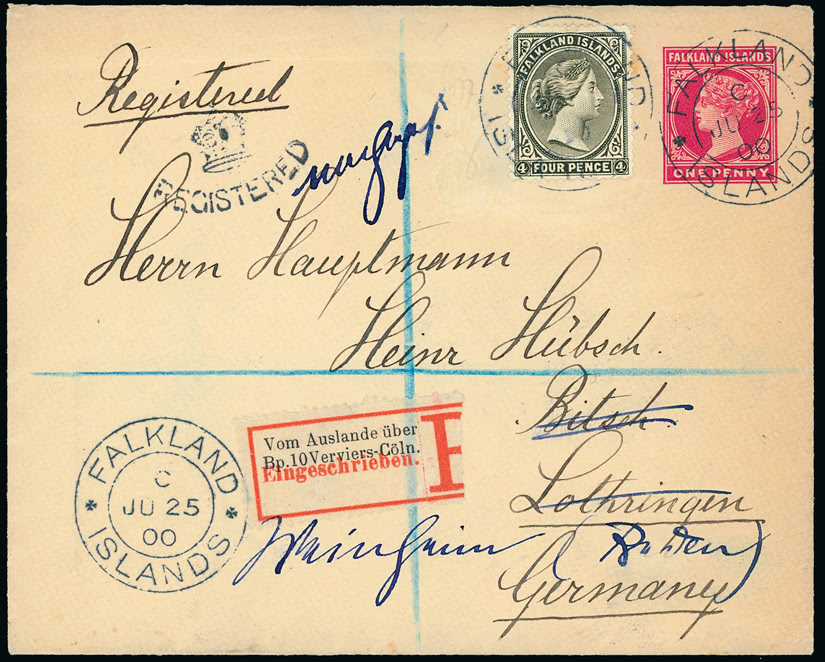 Registered
REGISTERED
FALKLAND ISLANDS
FOUR PENCE
4 4
FALKLAND ISLANDS
ONE PENNY
FALKLAND ISLANDS
C
JU 25
00
Herrn Hauptmann
Heinr Hübsch.
Bitsch.
Lothringen
Germany
Weinheim (Baden)
Vom Auslande über
Bp.10 Verviers-Cöln.
Eingeschrieben.
FALKLAND ISLANDS
C
JU 25
00